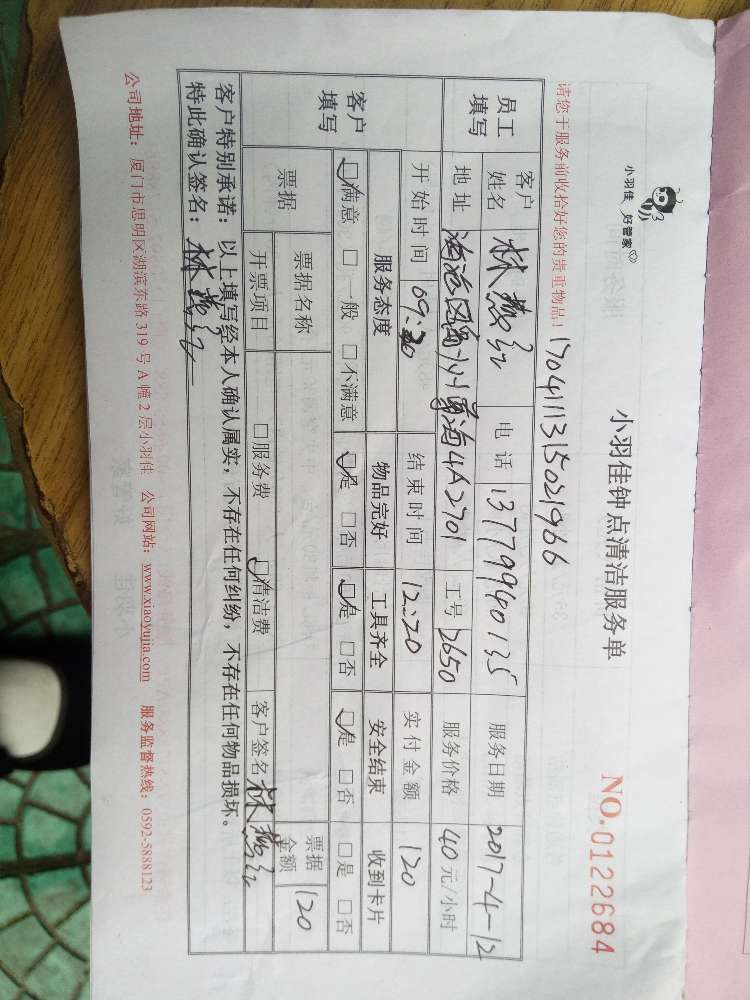 小羽佳 好管家
小羽佳钟点清洁服务单
NO.0122684
请您于服务前收拾好您的贵重物品!
170411315021966
员工填写 客户姓名 林 电话 13779940135 服务日期 2017-4-12
地址 海沧区 海4A2701 工号 2650 服务价格 40元/小时
开始时间 09:20 结束时间 12:20 实付金额 120
客户填写 服务态度 物品完好 工具齐全 安全结束 收到卡片
□满意 □一般 □不满意 □是 □否 □是 □否 □是 □否 □是 □否
票据 票据名称 票据金额 120
开票项目 □服务费 □清洁费 客户签名 林
客户特别承诺:以上填写经本人确认属实,不存在任何纠纷,不存在任何物品损坏。
特此确认签名:林
公司地址:厦门市思明区湖滨东路319号A幢2层小羽佳 公司网站:www.xiaoyujia.com 服务监督热线:0592-5888123